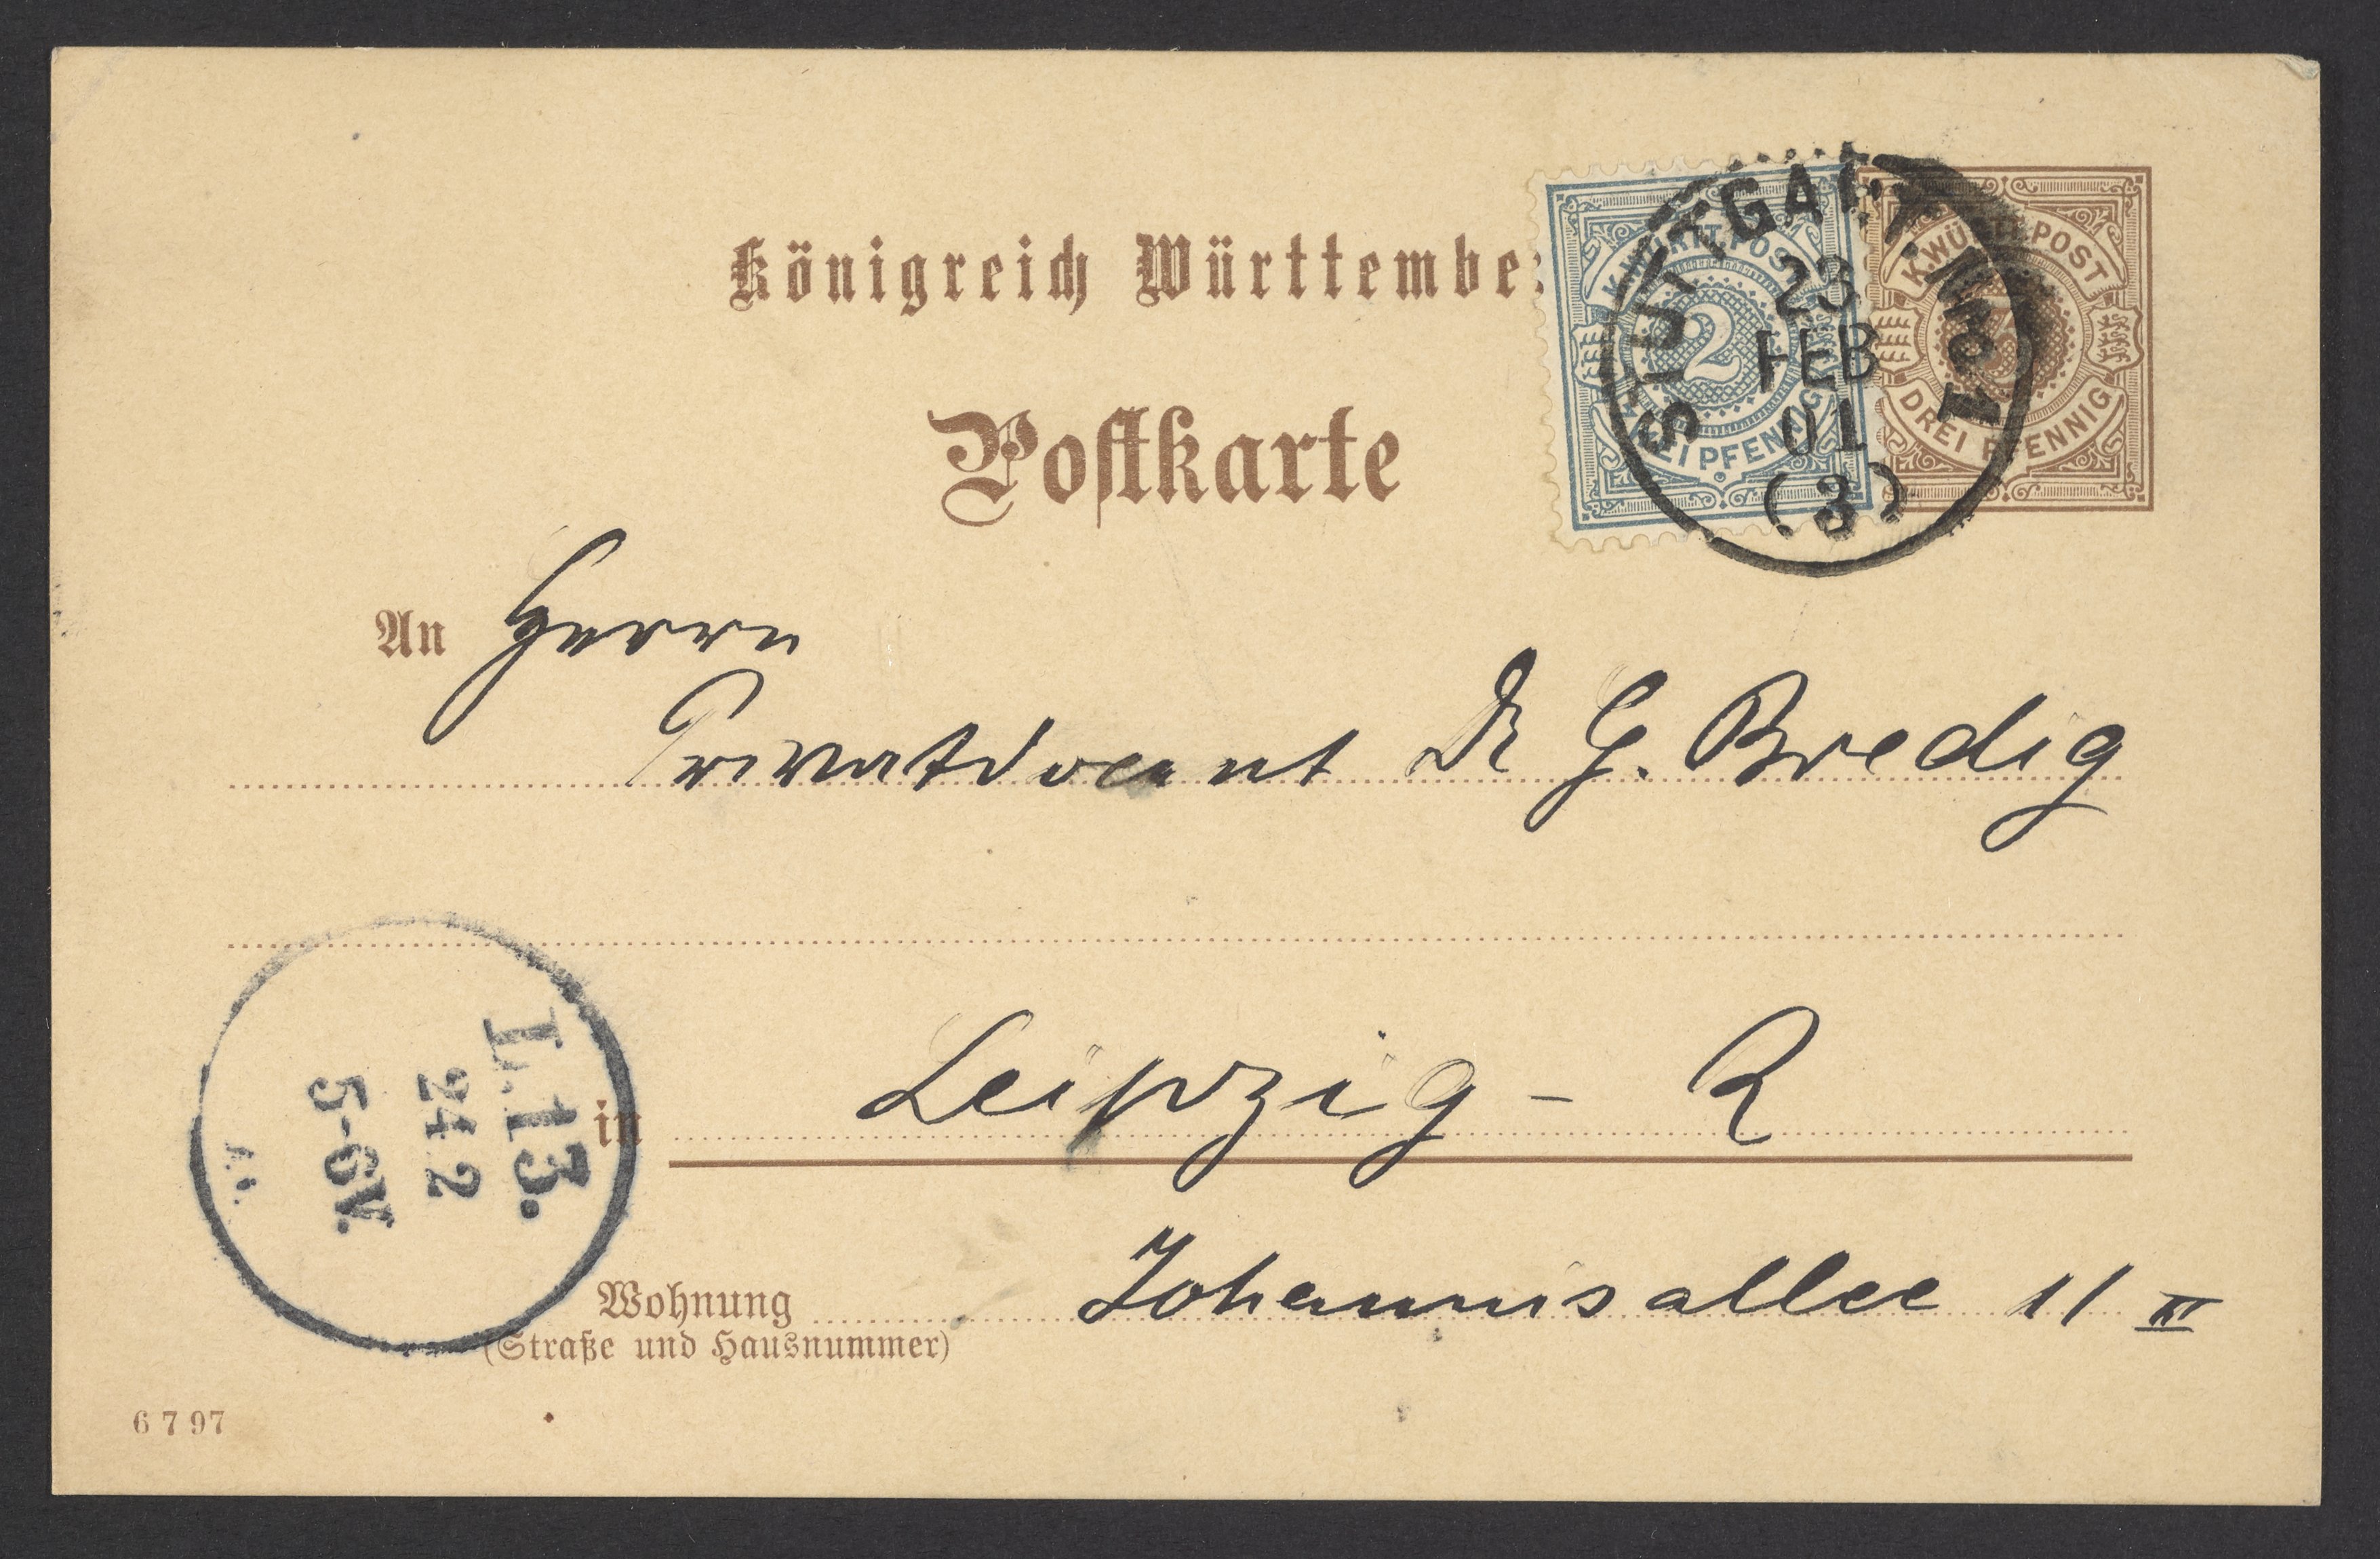 Königreich Württembe
K. WÜRTT. POST
2
EI PFENNIG
K. WÜRTT. POST
3
DREI PFENNIG
STUTTGART Nro 1
23
FEB
01
(3)
Postkarte
An Herrn
Privatdocent Dr G. Bredig
in Leipzig - R
L.13.
24 2
5-6V.
Wohnung Johannisallee 11 III
(Straße und Hausnummer)
6 7 97